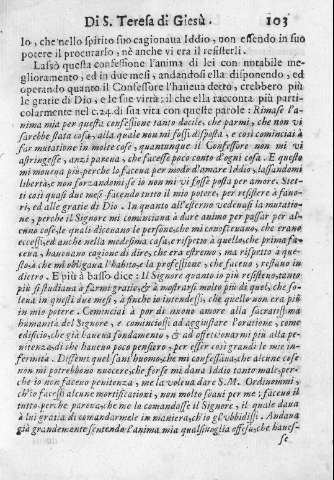 Di S. Teresa di Giesù. 103
lo, che nello spirito suo cagionaua Iddio, non essendo in suo
potere il procurarlo, nè anche vi era il resisterli.
Lassò questa confessione l'anima di lei con notabile me-
glioramento, ed in due mesi, andandosi ella disponendo, ed
operando quanto il Confessore l'haueua detto, crebbero più
le gratie di Dio, e le sue virtù: il che ella racconta più parti-
colarmente nel c. 24. di sua vita con queste parole: Rimase l'a-
nima mia per questa confessione tanto docile, che parmi, che non vi
sarebbe stata cosa, alla quale non mi fossi disposta, e così cominciai à
far mutatione in molte cose, quantunque il Confessore non mi vi
astringesse, anzi pareua, che facesse poco conto d'ogni cosa. E questo
mi moueua più, perche lo faceua per modo d'amare Iddio, lassandomi
libertà, e non forzandomi se io non mi vi fosse posta per amore. Stet-
ti così quasi due mesi facendo tutto il mio potere, per resistere à fauo-
ri, ed alle gratie di Dio. In quanto all'esterno vedeuasi la mutatio-
ne, perche il Signore mi cominciaua à dare animo per passar per al-
cune cose, le quali diceuano le persone, che mi conosceuano, che erano
eccessi, ed anche nella medesima casa, e rispetto à quello, che prima fa-
ceua, haueuano ragione di dire, che era estremo, ma rispetto a que-
sto, à che mi obligaua l'habito, e la professione, che faceuo, restauo in
dietro. E più à basso dice: Il Signore quanto io più resisteuo, tanto
più si studiaua à farmi gratie, & à mostrarsi molto più di quel, che so-
leua in questi due mesi, à finche io intendessi, che quello non era più
in mio potere. Cominciai à por di nuouo amore alla sacratissima
humanità del Signore, e cominciossi ad aggiustare l'oratione, come
edificio, che già haueua fondamento, & ad affettionarmi più alla pe-
nitenza, di che haueuo poco pensiero, per esser così grandi le mie in-
fermità. Dissemi quel sant'huomo, che mi confessaua, che alcune cose
non mi potrebbono nuocere, che forse mi daua Iddio tanto male, per-
che io non faceuo penitenza, me la voleua dare S.M. Ordinommi,
ch'io facessi alcune mortificationi, non molto soaui per me: faceuo il
tutto, perche pareua, che me lo comandasse il Signore, il quale daua
à lui gratia di comandarmele in maniera, ch'io gl'vbbidissi. Andaua
già grandemente sentendo l'anima mia qualsiuoglia offesa, che haues-
se